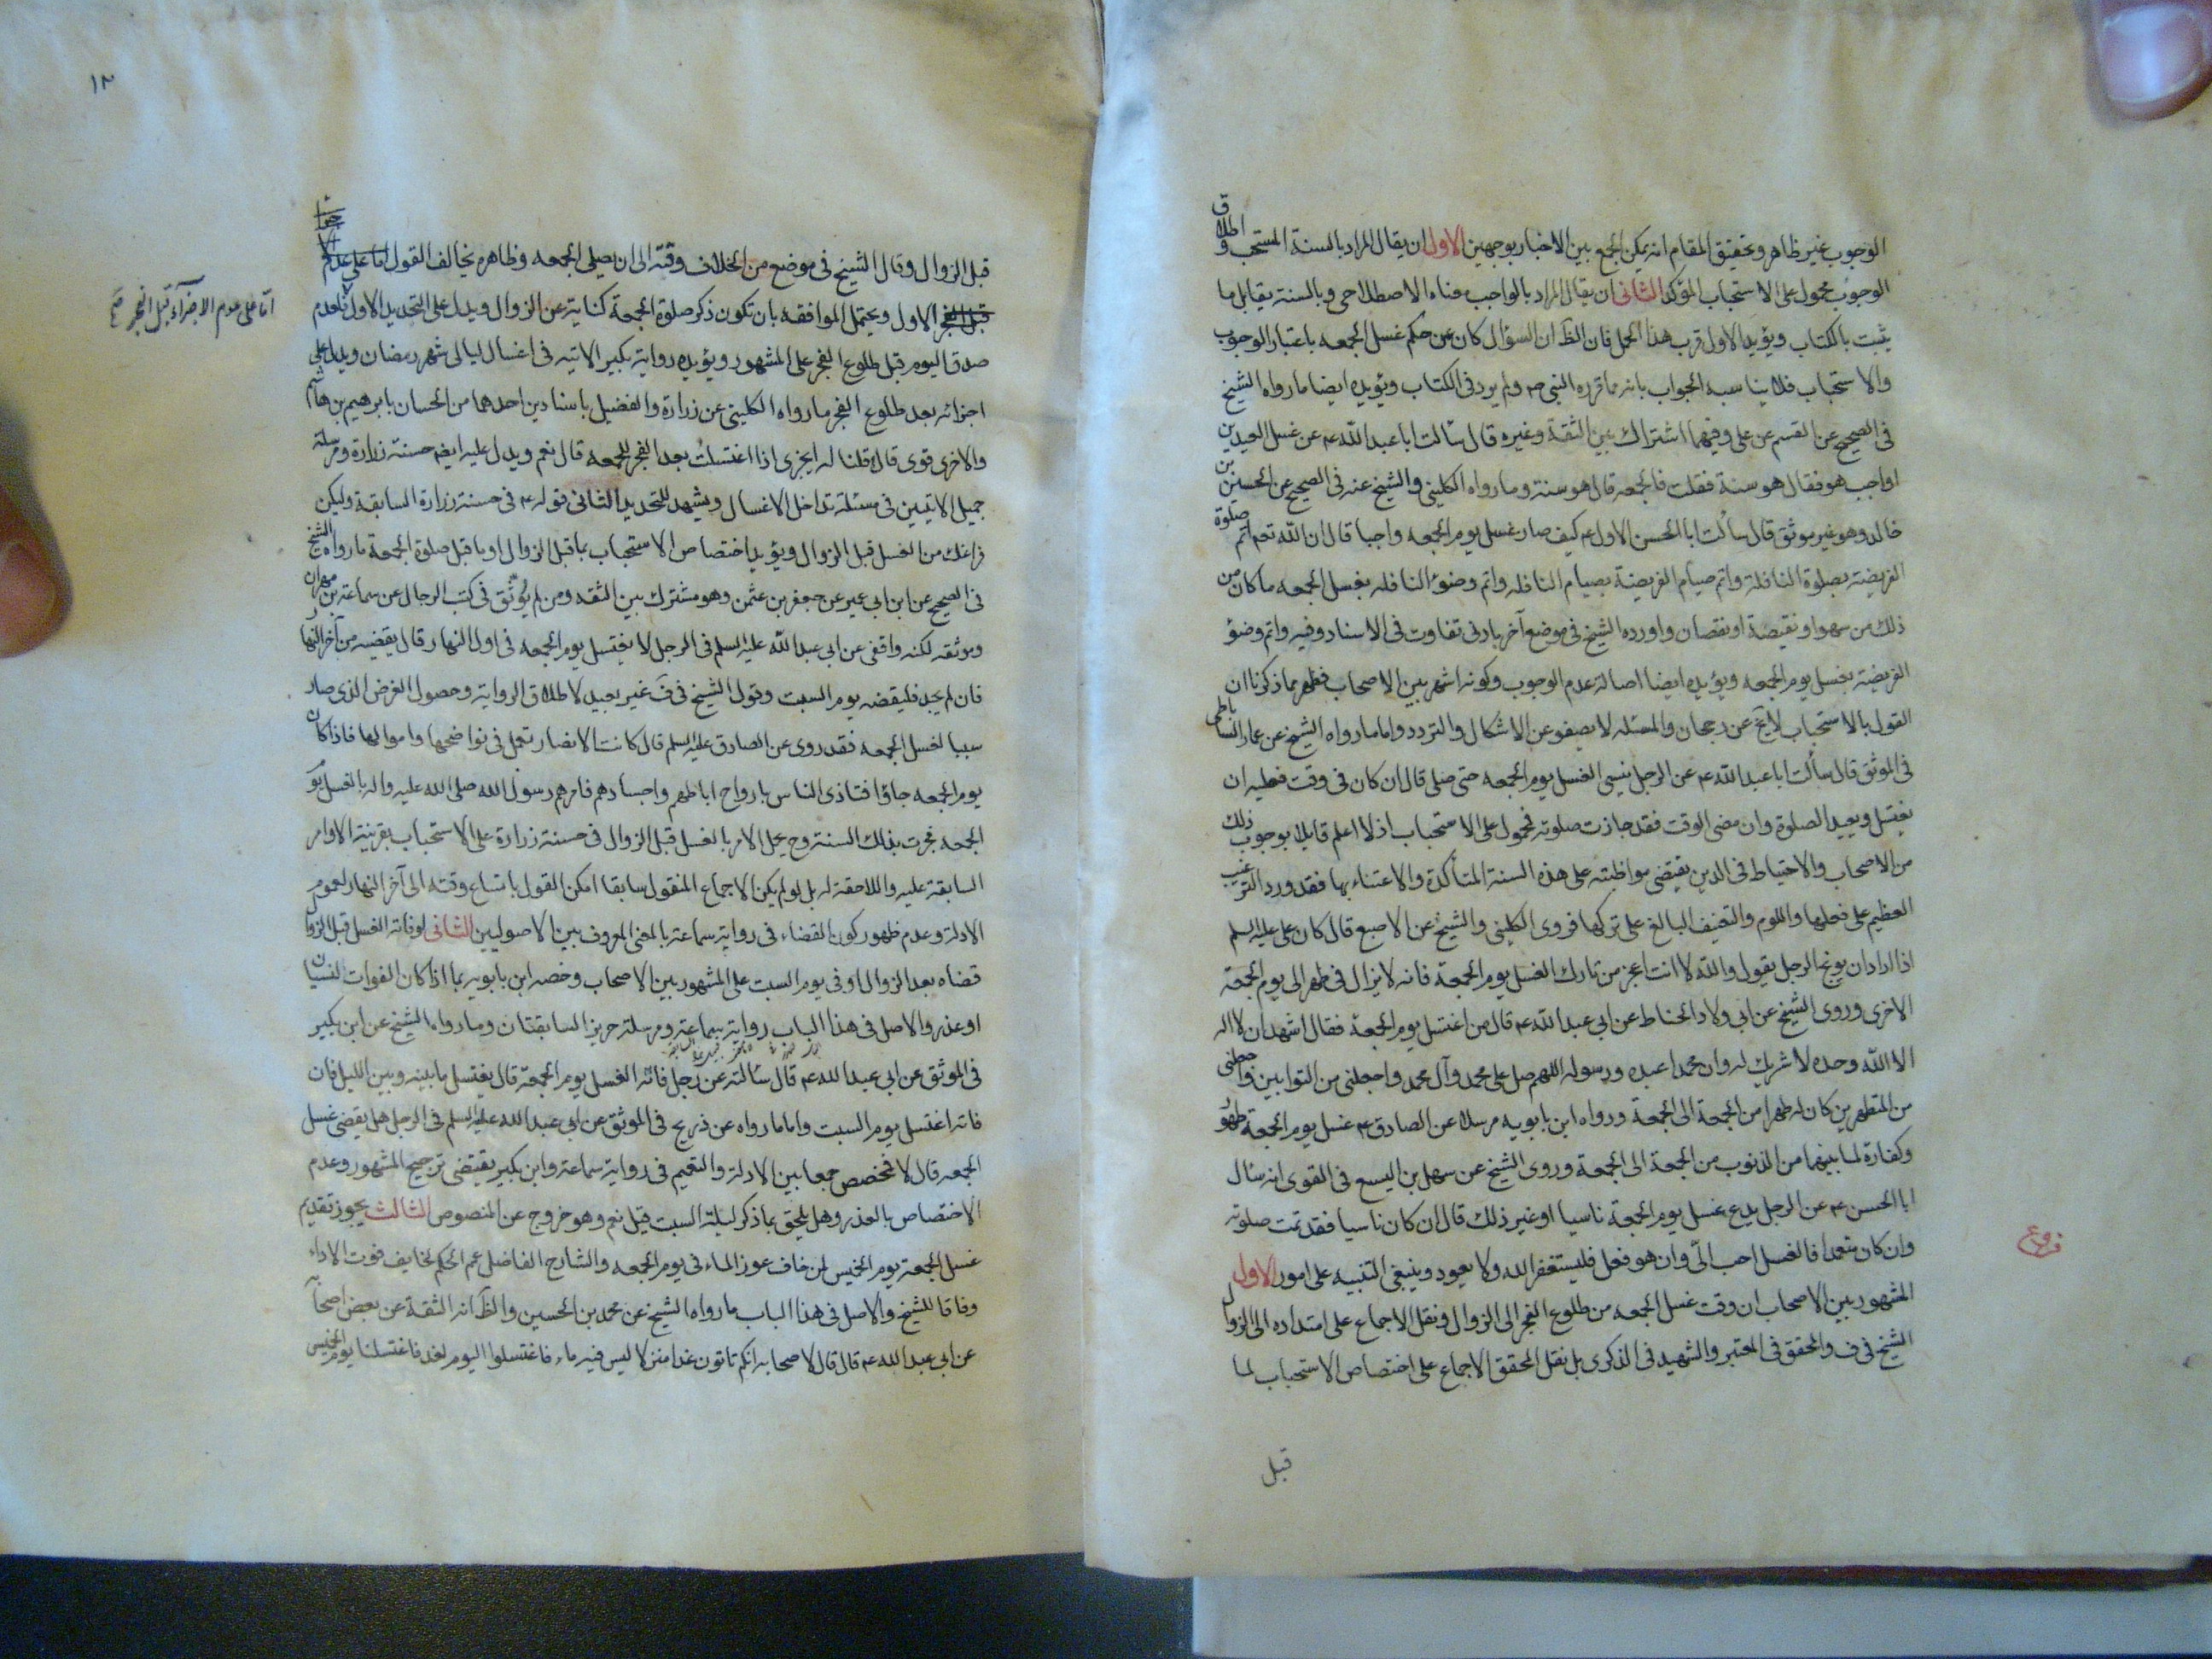 الوجوب غير ظاهر وتحقيق المقام انه يمكن الجمع بين الاخبار بوجهين الاول ان يقال المراد بالسنة المستحب واطلاق
الوجوب محمول على الاستحباب المؤكد الثانى ان يقال المراد بالواجب معناه الاصطلاحى وبالسنة يقابل ما
يثبت بالكتاب ويؤيد الاول قرب هذا الحمل فان الظ ان السؤال كان عن حكم غسل الجمعه باعتبار الوجوب
والاستحباب فلا يناسبه الجواب بانه مما قرره النبى ص ولم يرد فى الكتاب ويؤيده ايضا ما رواه الشيخ
فى الصحيح عن القسم عن على وفيهما اشتراك بين الثقة وغيره قال سألت ابا عبد الله ع عن غسل العيدين
اواجب هو فقال هو سنة فقلت فالجمعه قال هو سنة وما رواه الكلينى والشيخ عنه فى الصحيح عن الحسين بن
خالد وهو غير موثق قال سألت ابا الحسن الاول ع كيف صار غسل يوم الجمعه واجبا قال ان الله تعه اتم صلوة
الفريضة بصلوة النافلة واتم صيام الفريضة بصيام النافله واتم وضوء النافله بغسل الجمعه ما كان من
ذلك من سهو او نقيصة او نقصان واورده الشيخ فى موضع آخر بادنى تفاوت فى الاسناد وفيه واتم وضوء
الفريضة بغسل يوم الجمعه ويؤيده ايضا اصالة عدم الوجوب وكونه اشهر بين الاصحاب فظهر بما ذكرنا ان
القول بالاستحباب لا يخ عن رجحان والمسئله لا يصفو عن الاشكال والتردد واما ما رواه الشيخ عن عمار الساباطى
فى الموثق قال سألت ابا عبد الله ع عن الرجل ينسى الغسل يوم الجمعه حتى صلى قال ان كان فى وقت فعليه ان
يغتسل ويعيد الصلوة وان مضى الوقت فقد جازت صلوته فمحمول على الاستحباب اذ لا اعلم قايلا بوجوب ذلك
من الاصحاب والاحتياط فى الدين يقتضى مواظبته على هذه السنة المتأكدة والاعتناء بها فقد ورد الترغيب
العظيم على فعلها واللوم والتعنيف البالغ على تركها فروى الكلينى والشيخ عن الاصبغ قال كان على عليه السلم
اذا اراد ان يوبخ الرجل يقول والله لانت اعجز من تارك الغسل يوم الجمعة فانه لا يزال فى طهر الى يوم الجمعة
الاخرى وروى الشيخ عن ابى ولاد الحناط عن ابى عبد الله ع قال من اغتسل يوم الجمعة فقال اشهد ان لا اله
الا الله وحده لا شريك له وان محمدا عبده ورسوله اللهم صل على محمد وآل محمد واجعلنى من التوابين واجعلنى
من المتطهرين كان له طهرا من الجمعة الى الجمعة ورواه ابن بابويه مرسلا عن الصادق ع غسل يوم الجمعة طهور
وكفارة لما بينهما من الذنوب من الجمعة الى الجمعة وروى الشيخ عن سهل بن اليسع فى القوى انه سأل
ابا الحسن ع عن الرجل يدع غسل يوم الجمعة ناسيا او غير ذلك قال ان كان ناسيا فقد تمت صلوته
وان كان متعمدا فالغسل احب الى وان هو فعل فليستغفر الله ولا يعود وينبغى التنبيه على امور الاول
فروع
المشهور بين الاصحاب ان وقت غسل الجمعه من طلوع الفجر الى الزوال ونقل الاجماع على امتداده الى الزوال
الشيخ فى ف والمحقق فى المعتبر والشهيد فى الذكرى بل نقل المحقق الاجماع على اختصاص الاستحباب لما
قبل
١٣
قبل الزوال وقال الشيخ فى موضع من الخلاف وقته الى ان يصلى الجمعه وظاهره يخالف القول اما على عدم
اما على عدم الاجزاء قبل الفجر صح
قبل الفجر الاول ويحتمل الموافقه بان تكون ذكر صلوة الجمعة كناية عن الزوال ويدل على التحديد الاول فلعدم
صدق اليوم قبل طلوع الفجر على المشهور ويؤيده رواية بكير الاتيه فى اغسال ليالى شهر رمضان ويدل على
اجزائه بعد طلوع الفجر ما رواه الكلينى عن زرارة والفضيل باسنادين احدهما من الحسان بابرهيم بن هاشم
والاخرى قوى قالا قلنا له ايجزى اذا اغتسلت بعد الفجر للجمعه قال نعم ويدل عليه ايضه حسنة زرارة ومرسلة
جميل الاتيين فى مسئلة تداخل الاغسال ويشهد للتحديد الثانى قوله ع فى حسنة زرارة السابقة وليكن
فراغك من الغسل قبل الزوال ويؤيد اختصاص الاستحباب بما قبل الزوال او ما قبل صلوة الجمعة ما رواه الشيخ
فى الصحيح عن ابن ابى عمير عن جعفر بن عثمن وهو مشترك بين الثقه ومن لم يوثق فى كتب الرجال عن سماعة بن مهران
وموثقه لكنه واقفى عن ابى عبد الله عليه السلم فى الرجل لا يغتسل يوم الجمعه فى اول النهار قال يقضيه من آخر النهار
فان لم يجد فليقضه يوم السبت وقول الشيخ فى ف غير بعيد لاطلاق الرواية وحصول الغرض الذى صار
سببا لغسل الجمعه فقد روى عن الصادق عليه السلم قال كانت الانصار تعمل فى نواضحها واموالها فاذا كان
يوم الجمعه جاؤا فتاذى الناس بارواح اباطهم واجسادهم فامرهم رسول الله صلى الله عليه واله بالغسل يوم
الجمعه فجرت بذلك السنة وح يحمل الامر بالغسل قبل الزوال فى حسنة زرارة على الاستحباب بقرينة الاوامر
السابقة عليه واللاحقة له بل لو لم يكن الاجماع المنقول سابقا امكن القول باتساع وقته الى آخر النهار لعموم
الادلة وعدم ظهور كون القضاء فى رواية سماعة بالمعنى المعروف بين الاصوليين الثانى لو فاته الغسل قبل الزوال
قضاه بعد الزوال او فى يوم السبت على المشهور بين الاصحاب وخصه ابن بابويه بما اذا كان الفوات لنسيان
او عذر والاصل فى هذا الباب رواية سماعة ومرسلة حريز السابقتان وما رواه الشيخ عن ابن بكير
فى الموثق عن ابى عبد الله ع قال سألته عن رجل فاته الغسل يوم الجمعة قال يغتسل ما بينه وبين الليل فان
فاته اغتسل يوم السبت واما ما رواه عن ذريح فى الموثق عن ابى عبد الله عليه السلم فى الرجل هل يقضى غسل
الجمعه قال لا فمخصص جمعا بين الادلة والتعميم فى رواية سماعة وابن بكير يقتضى ترجيح المشهور وعدم
الاختصاص بالعذر وهل يلحق بما ذكر ليلة السبت قيل نعم وهو خروج عن المنصوص الثالث يجوز تقديم
غسل الجمعة يوم الخميس لمن خاف عوز الماء فى يوم الجمعه والشارح الفاضل عمم الحكم لخايف فوت الاداء
وفاقا للشيخ والاصل فى هذا الباب ما رواه الشيخ عن محمد بن الحسين والظ انه الثقة عن بعض اصحابه
عن ابى عبد الله ع قال قال لاصحابه انكم تاتون غدا منزلا ليس فيه ماء فاغتسلوا اليوم لغد فاغتسلنا يوم الخميس